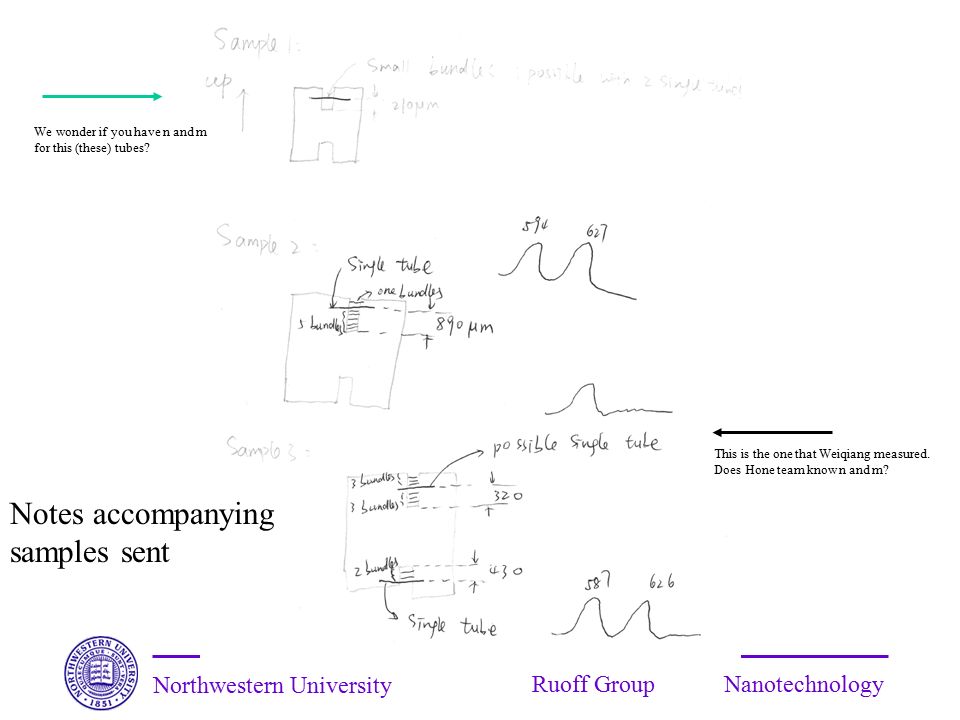 Sample 1:
up
Small bundles : possible with 2 single tubes
210μm
We wonder if you have n and m
for this (these) tubes?
Sample 2 :
594 627
Single tube
one bundles
5 bundles
890μm
Sample 3 :
possible Single tube
This is the one that Weiqiang measured.
Does Hone team know n and m?
3 bundles
3 bundles
320
Notes accompanying
samples sent
2 bundles
430
587 626
Single tube
NORTHWESTERN UNIVERSITY
1851
Northwestern University Ruoff Group Nanotechnology